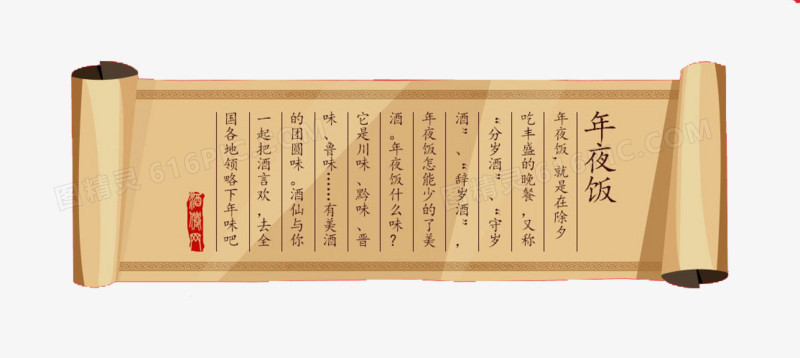 年夜饭
年夜饭,就是在除夕
吃丰盛的晚餐,又称
“分岁酒”、“守岁
酒”、“辞岁酒”,
年夜饭怎能少的了美
酒。年夜饭什么味?
它是川味、黔味、晋
味、鲁味……有美酒
的团圆味。酒仙与你
一起把酒言欢,去全
国各地领略下年味吧
图精灵 616PIC.COM